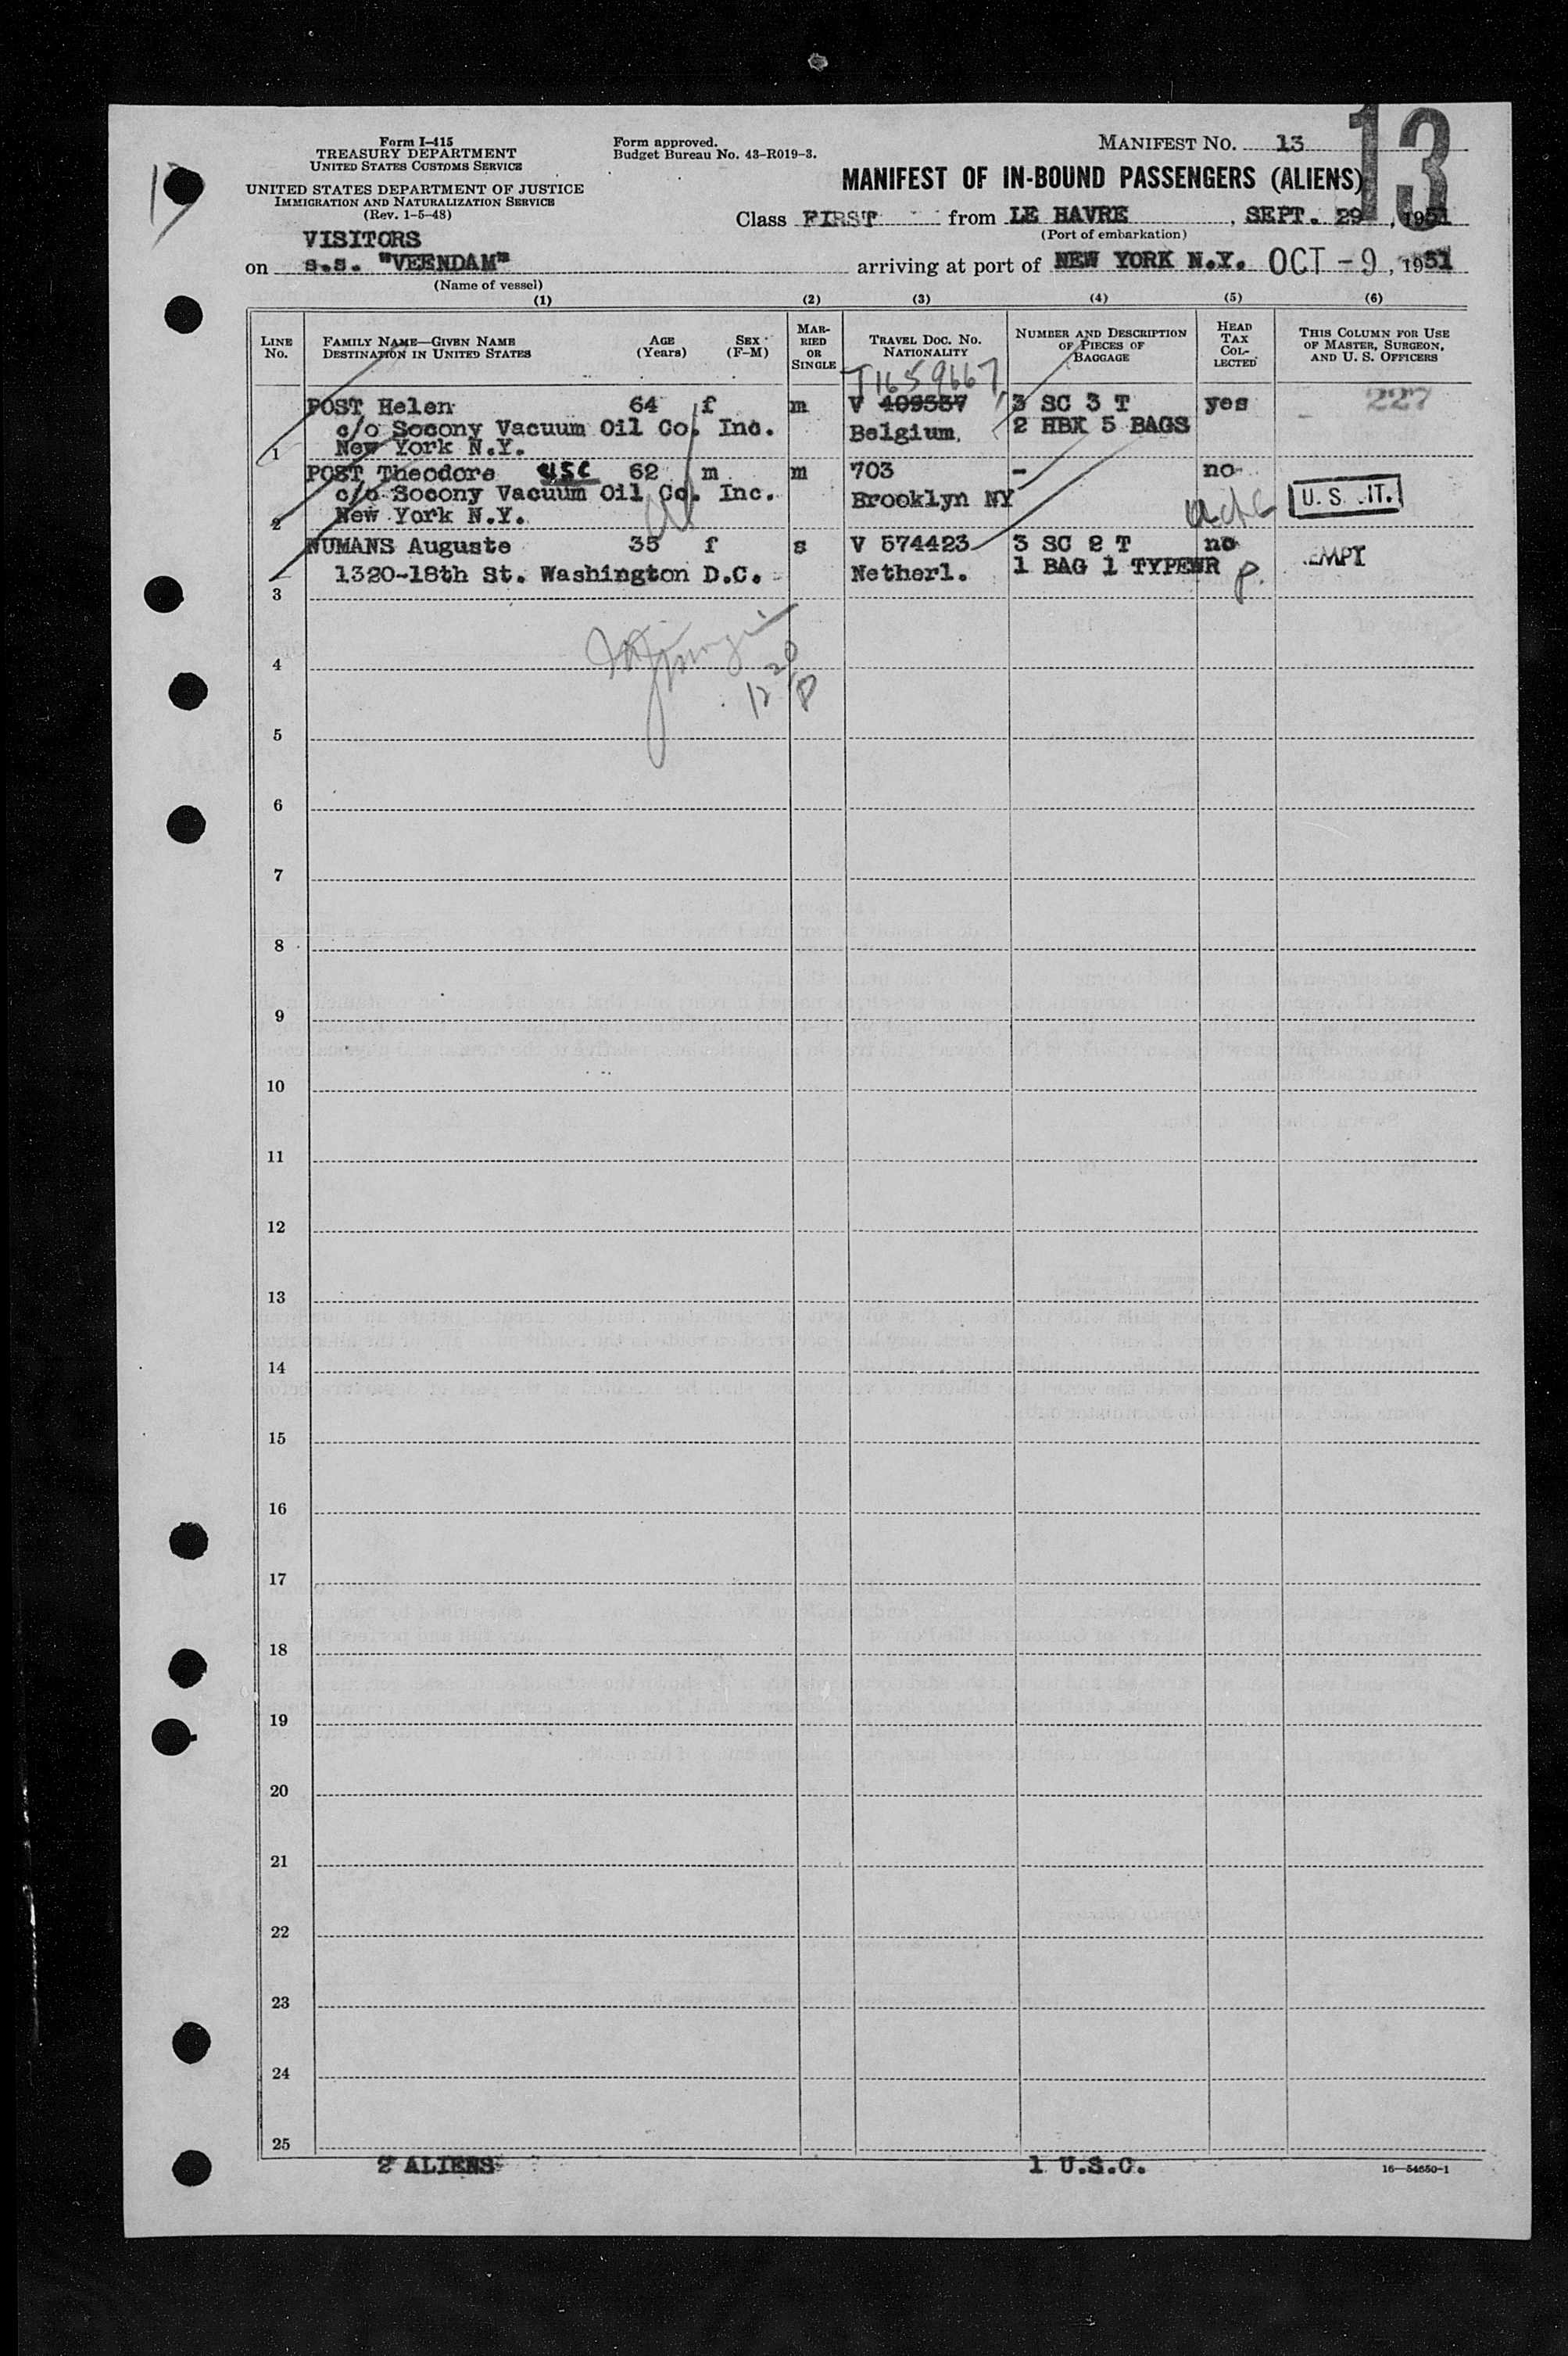 Form I-415
TREASURY DEPARTMENT
UNITED STATES CUSTOMS SERVICE
UNITED STATES DEPARTMENT OF JUSTICE
IMMIGRATION AND NATURALIZATION SERVICE
(Rev. 1-5-48)
Form approved.
Budget Bureau No. 43-R019-3.
MANIFEST NO. 13
13
MANIFEST OF IN-BOUND PASSENGERS (ALIENS)
Class FIRST from LE HAVRE, SEPT. 29, 1951
(Port of embarkation)
VISITORS
on s.s. "VEENDAM" arriving at port of NEW YORK N.Y. OCT - 9, 1951
(Name of vessel)
(1) (2) (3) (4) (5) (6)
LINE No.
FAMILY NAME—GIVEN NAME
DESTINATION IN UNITED STATES
AGE (Years)
SEX (F-M)
MARRIED OR SINGLE
TRAVEL DOC. NO.
NATIONALITY
NUMBER AND DESCRIPTION OF PIECES OF BAGGAGE
HEAD TAX COLLECTED
THIS COLUMN FOR USE OF MASTER, SURGEON, AND U. S. OFFICERS
T1659667
POST Helen 64 f m V 409557 3 SC 3 T yes 227
c/o Socony Vacuum Oil Co. Inc. Belgium. 2 HBX 5 BAGS
1 New York N.Y.
POST Theodore USC 62 m m 703 - no
c/o Socony Vacuum Oil Co. Inc. Brooklyn NY U. S. IT.
2 New York N.Y.
NUMANS Auguste 35 f s V 574423 3 SC 2 T no
1320-18th St. Washington D.C. Netherl. 1 BAG 1 TYPEWR EMPT
3
4
12 20 P
5
6
7
8
9
10
11
12
13
14
15
16
17
18
19
20
21
22
23
24
25
2 ALIENS 1 U.S.C. 16—54650-1